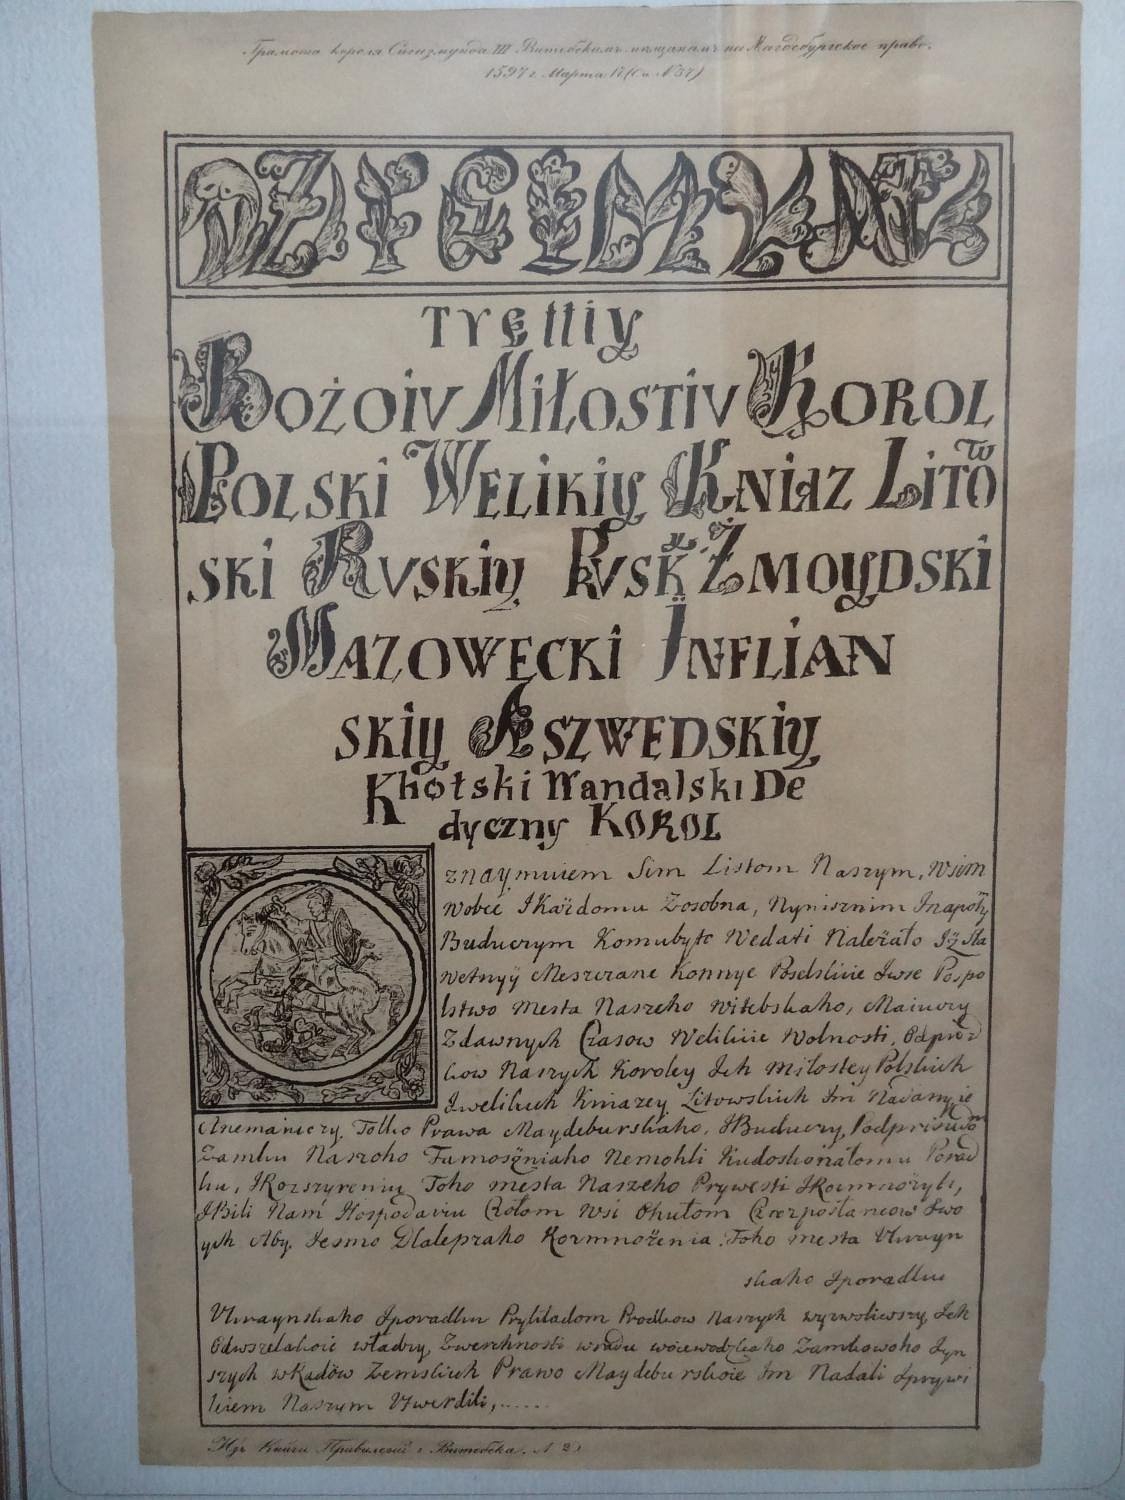 Грамота короля Сигизмунда III Витебскимъ мѣщанамъ на Магдебургское право.
1597 г. Марта 17 (См. № 37)
ZYGIMUNT
Tretiy
Bożoiv Miłostiv Korol
Polski Welikiy Kniaz Lito w
ski Ruskiy Prusk Żmoydski
Mazowecki Inflian
skiy A Szwedskiy
Khotski Wandalski De
dyczny Korol
znaymuiem Sim Listom Naszym, Wsim
wobec I Każdomu Zosobna, Nynisznim Inapotỹ
Buduczym Komubyto Wedati Należało Iż Sła
wetnyy Meszczane Konnye Poselskiie Iwse Pospo
lstwo mesta Naszeho witebskaho, Maiuczy
Zdawnych Czasow Welikiie Wolnosti, Odprod
kow Naszych Koroley Ich miłostey Polskich
Iwelikich Kniazey Litowskich Im Nadanyie
Anemaiuczy Tolko Prawa Maydeburskaho, I Buduczy, Podprisudom
Zamku Naszoho Tamosz̈niaho Nemohli Kudoskonałomu Porad
ku, I Rozszyreniu Toho mesta Naszeho Prywesti I Rozmnożyti,
I Bili Nam Hospodaru Czołom Wsi Ohułom Czerezposłancow Swo
ych Aby Iesmo Dlalepszaho Rozmnożenia Toho mesta Ukrayn
skaho Iporadku
Ukraynskaho Iporadku Prykładom Prodkow Naszych wyzwoliwszy Ich
Odwszelakoie władzy, Zwerchnosti wradu woiewodzkaho Zamkowoho Iyn
szych wradow Zemskich Prawo Maydeburskoie Im Nadali Iprywi
liem Naszym Utwerdili,......
Изъ Книги Привилегій г. Витебска. № 2